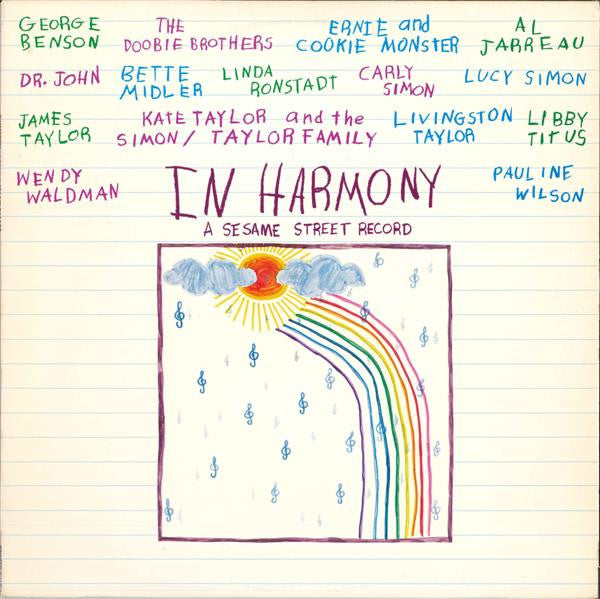 GEORGE BENSON
THE DOOBIE BROTHERS
ERNIE and COOKIE MONSTER
AL JARREAU
DR. JOHN
BETTE MIDLER
LINDA RONSTADT
CARLY SIMON
LUCY SIMON
JAMES TAYLOR
KATE TAYLOR and the SIMON / TAYLOR FAMILY
LIVINGSTON TAYLOR
LIBBY TITUS
WENDY WALDMAN
IN HARMONY
PAULINE WILSON
A SESAME STREET RECORD